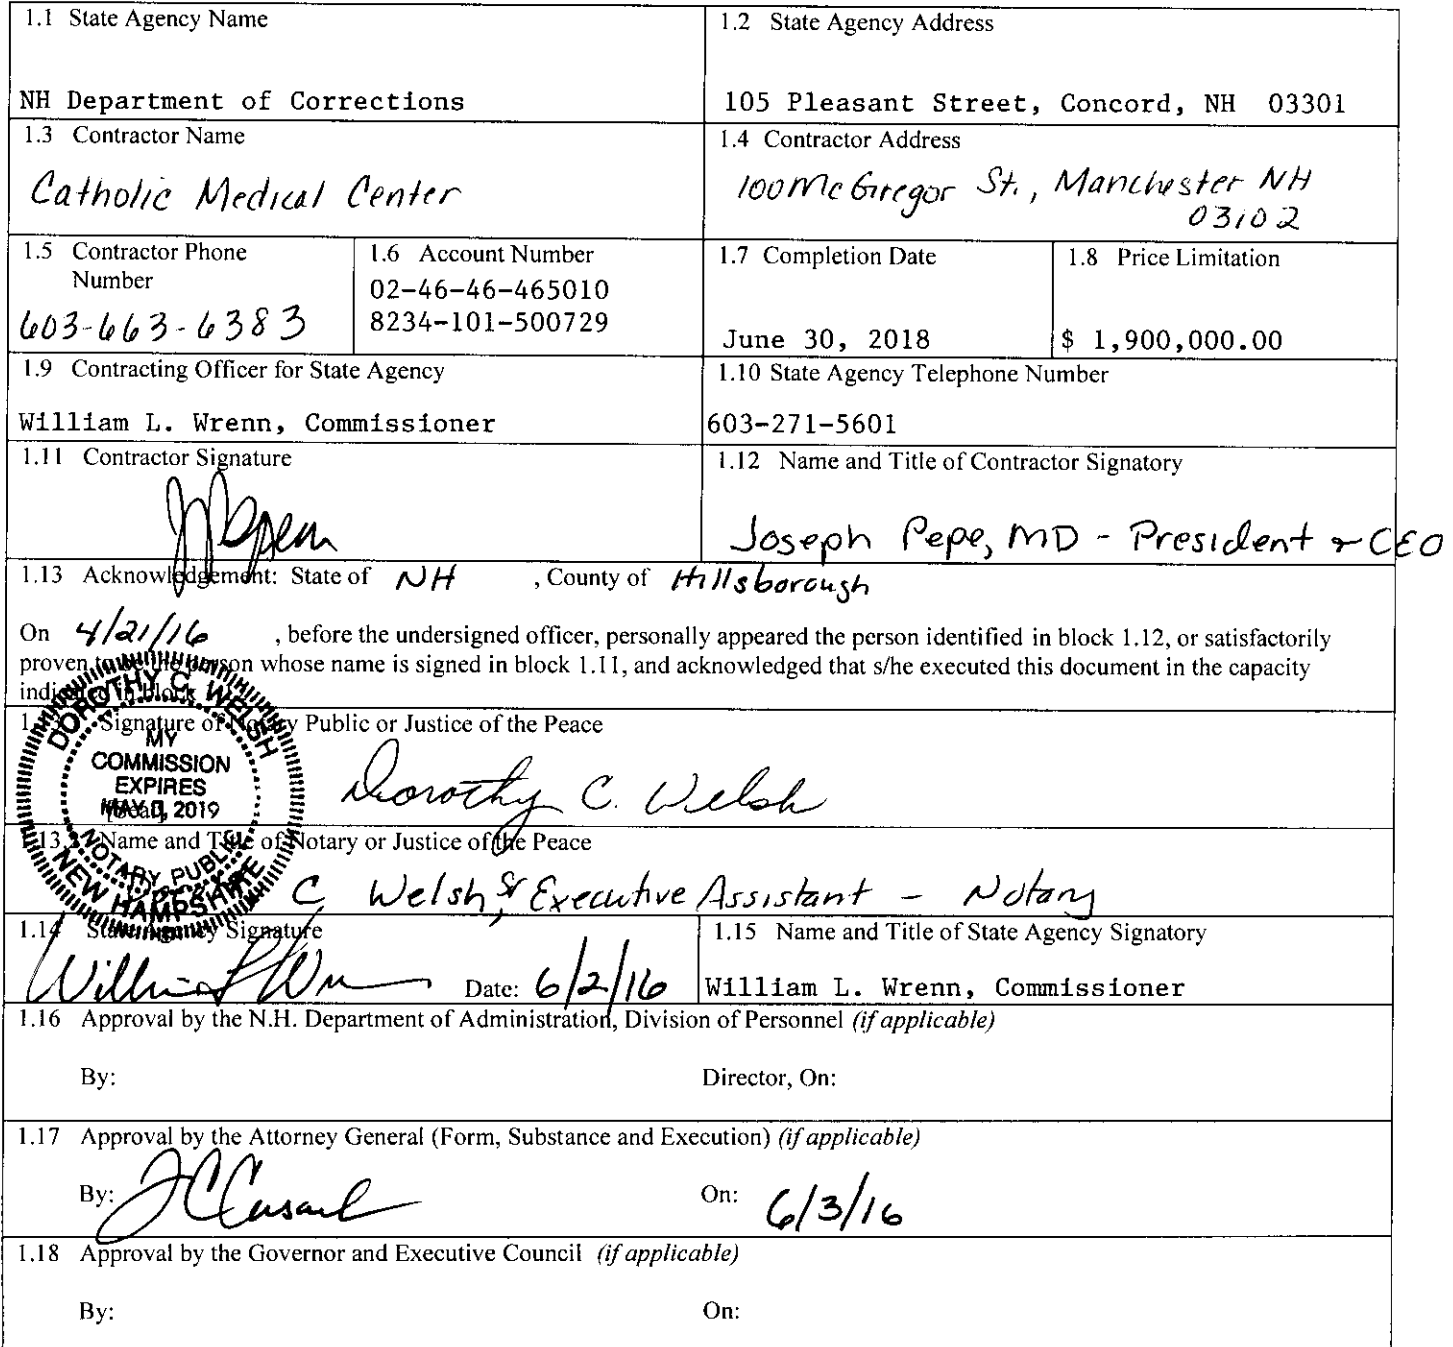 1.1 State Agency Name
1.2 State Agency Address
NH Department of Corrections
105 Pleasant Street, Concord, NH 03301
1.3 Contractor Name
1.4 Contractor Address
Catholic Medical Center
100 McGregor St., Manchester NH
03102
1.5 Contractor Phone
Number
603-663-6383
1.6 Account Number
02-46-46-465010
8234-101-500729
1.7 Completion Date
June 30, 2018
1.8 Price Limitation
$ 1,900,000.00
1.9 Contracting Officer for State Agency
1.10 State Agency Telephone Number
William L. Wrenn, Commissioner
603-271-5601
1.11 Contractor Signature
1.12 Name and Title of Contractor Signatory
Joseph Pepe, MD - President & CEO
1.13 Acknowledgement: State of NH , County of Hillsborough
On 4/21/16 , before the undersigned officer, personally appeared the person identified in block 1.12, or satisfactorily
proven to be the person whose name is signed in block 1.11, and acknowledged that s/he executed this document in the capacity
indicated in block
Signature of Notary Public or Justice of the Peace
DOROTHY C. WELSH
MY
COMMISSION
EXPIRES
2019
NOTARY PUBLIC
NEW HAMPSHIRE
Dorothy C. Welsh
Name and Title of Notary or Justice of the Peace
C Welsh, Sr Executive Assistant - Notary
1.14 State Agency Signature
William L Wrenn
Date: 6/2/16
1.15 Name and Title of State Agency Signatory
William L. Wrenn, Commissioner
1.16 Approval by the N.H. Department of Administration, Division of Personnel (if applicable)
By:
Director, On:
1.17 Approval by the Attorney General (Form, Substance and Execution) (if applicable)
By:
On: 6/3/16
1.18 Approval by the Governor and Executive Council (if applicable)
By:
On: